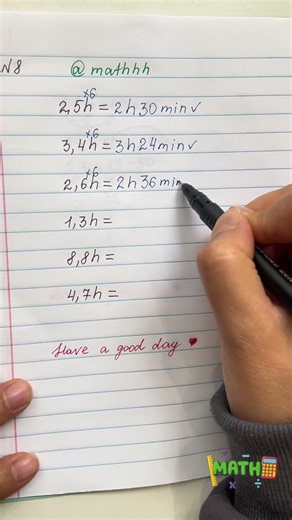 N8 @mathhh
×6
2,5h = 2h30min✓
×6
3,4h = 3h24min✓
×6
2,6h = 2h36min
1,3h =
8,8h =
4,7h =
Have a good day ♥
MATH